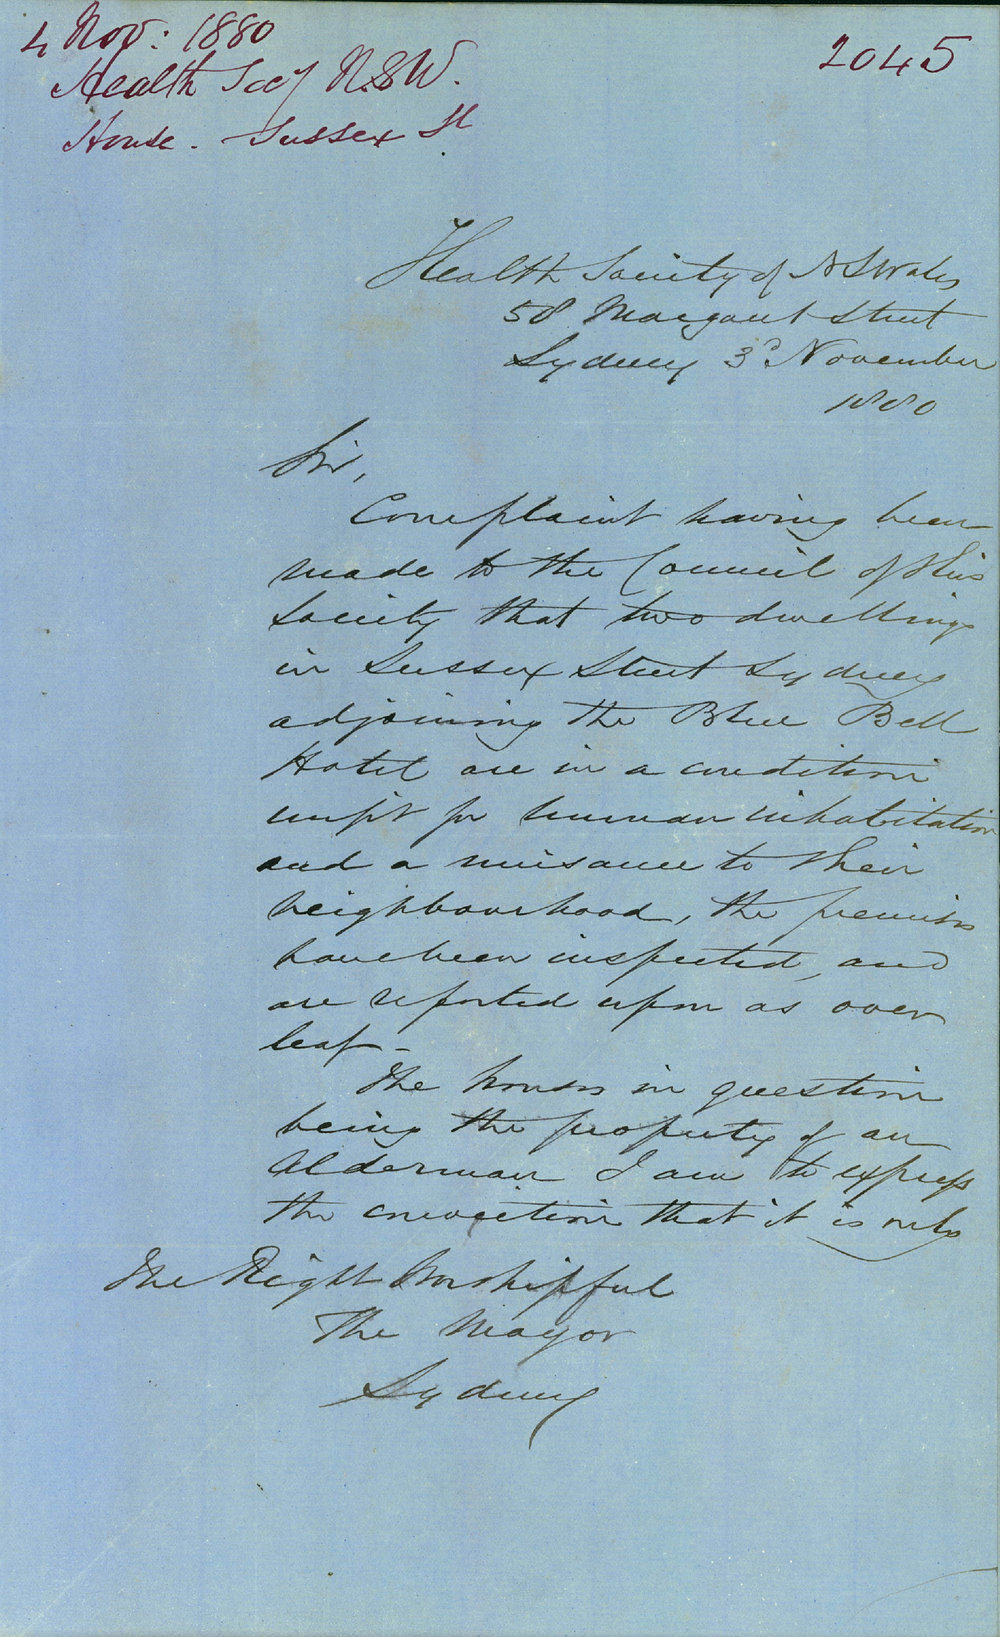 4 Nov: 1880
2045
Health Socy N.S.W.
House. Sussex St
Health Society of N S Wales
58 Margaret Street
Sydney 3d November
1880
Sir,
Complaint having been
made to the Council of this
Society that two dwellings
in Sussex Street Sydney
adjoining the Blue Bell
Hotel are in a condition
unfit for human inhabitation
and a nuisance to their
neighbourhood, the premises
have been inspected, and
are reported upon as over
leaf -
The houses in question
being the property of an
Alderman I am to express
the conviction that it is only
The Right Worshipful
The Mayor
Sydney